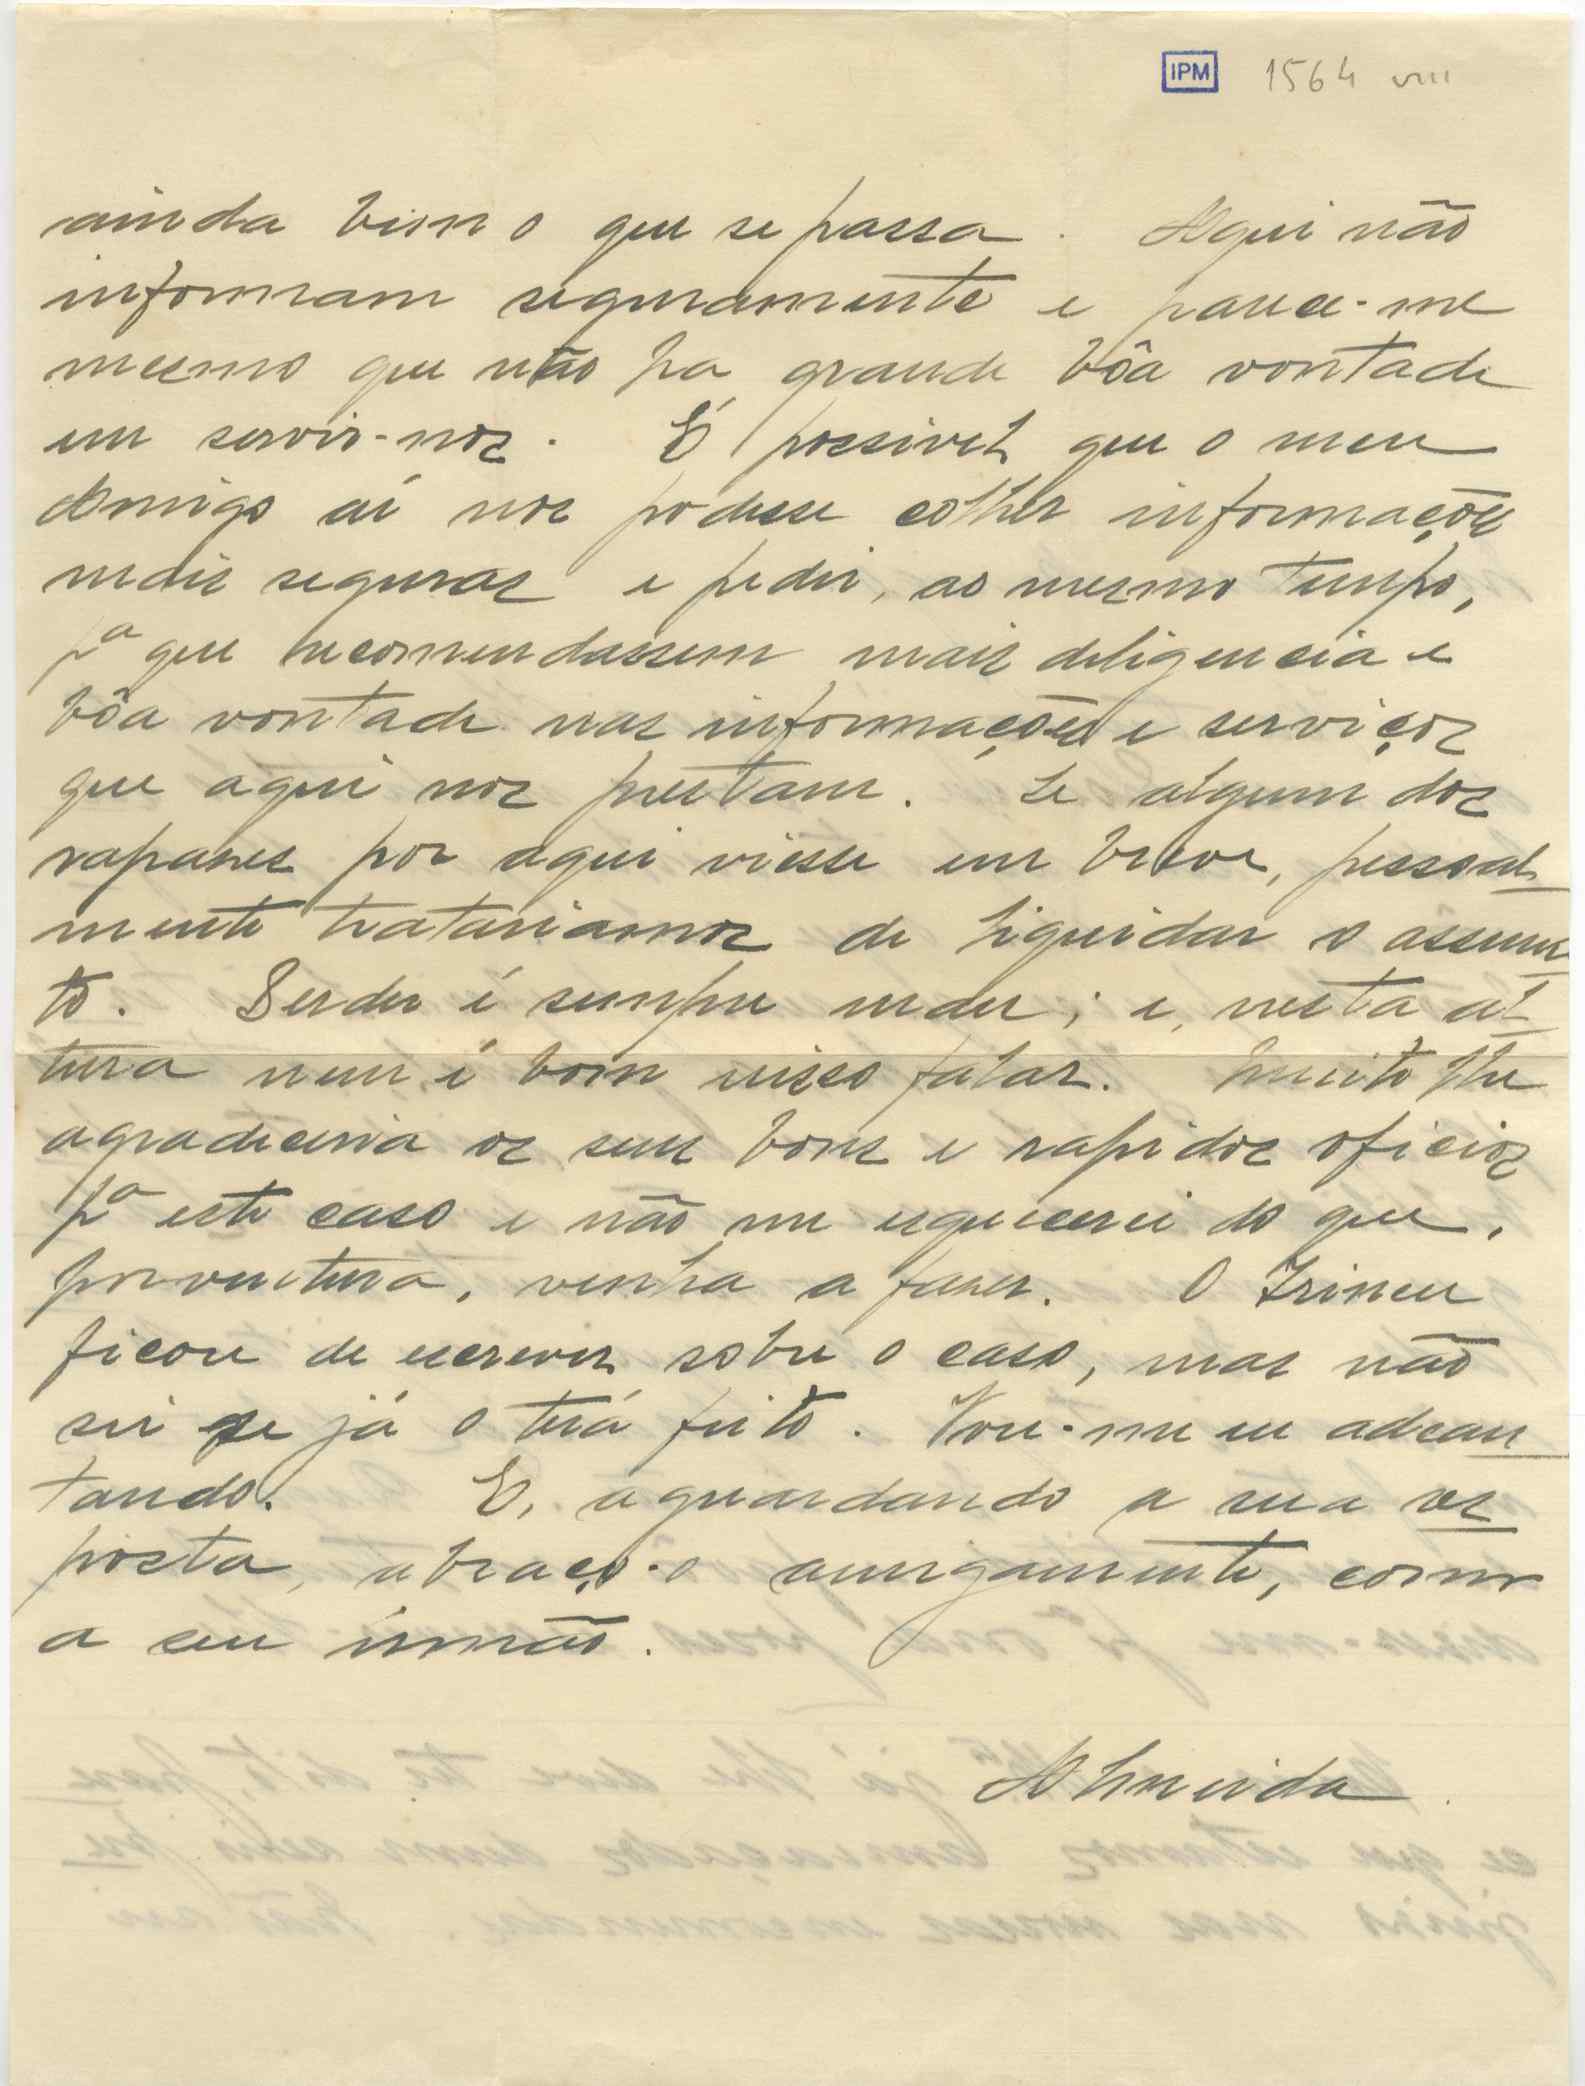 IPM 1564 VIII
ainda bem o que se passa. Aqui não
informam seguramente e parece-me
mesmo que não ha grande bôa vontade
em servir-nos. É possivel que o meu
Amigo aí nos podesse colher informações
mais seguras e pedir, ao mesmo tempo,
pª que recomendassem mais deligencia e
bôa vontade nas informações e serviços
que aqui nos prestam. Se algum dos
rapazes por aqui viesse em breve, pessoal
mente tratariamos de liquidar o assun
to. Perder é sempre mau; e, nesta al
tura nem é bom nisso falar. Muito lhe
agradeceria os seus bons e rapidos oficios
pª este caso e não me esquecerei do que,
porventura, venha a fazer. O Irineu
ficou de escrever sobre o caso, mas não
sei se já o terá feito. Vou-me eu adean
tando. E, aguardando a sua res
posta, abraço-o amigamente, como
a seu irmão.
Almeida.